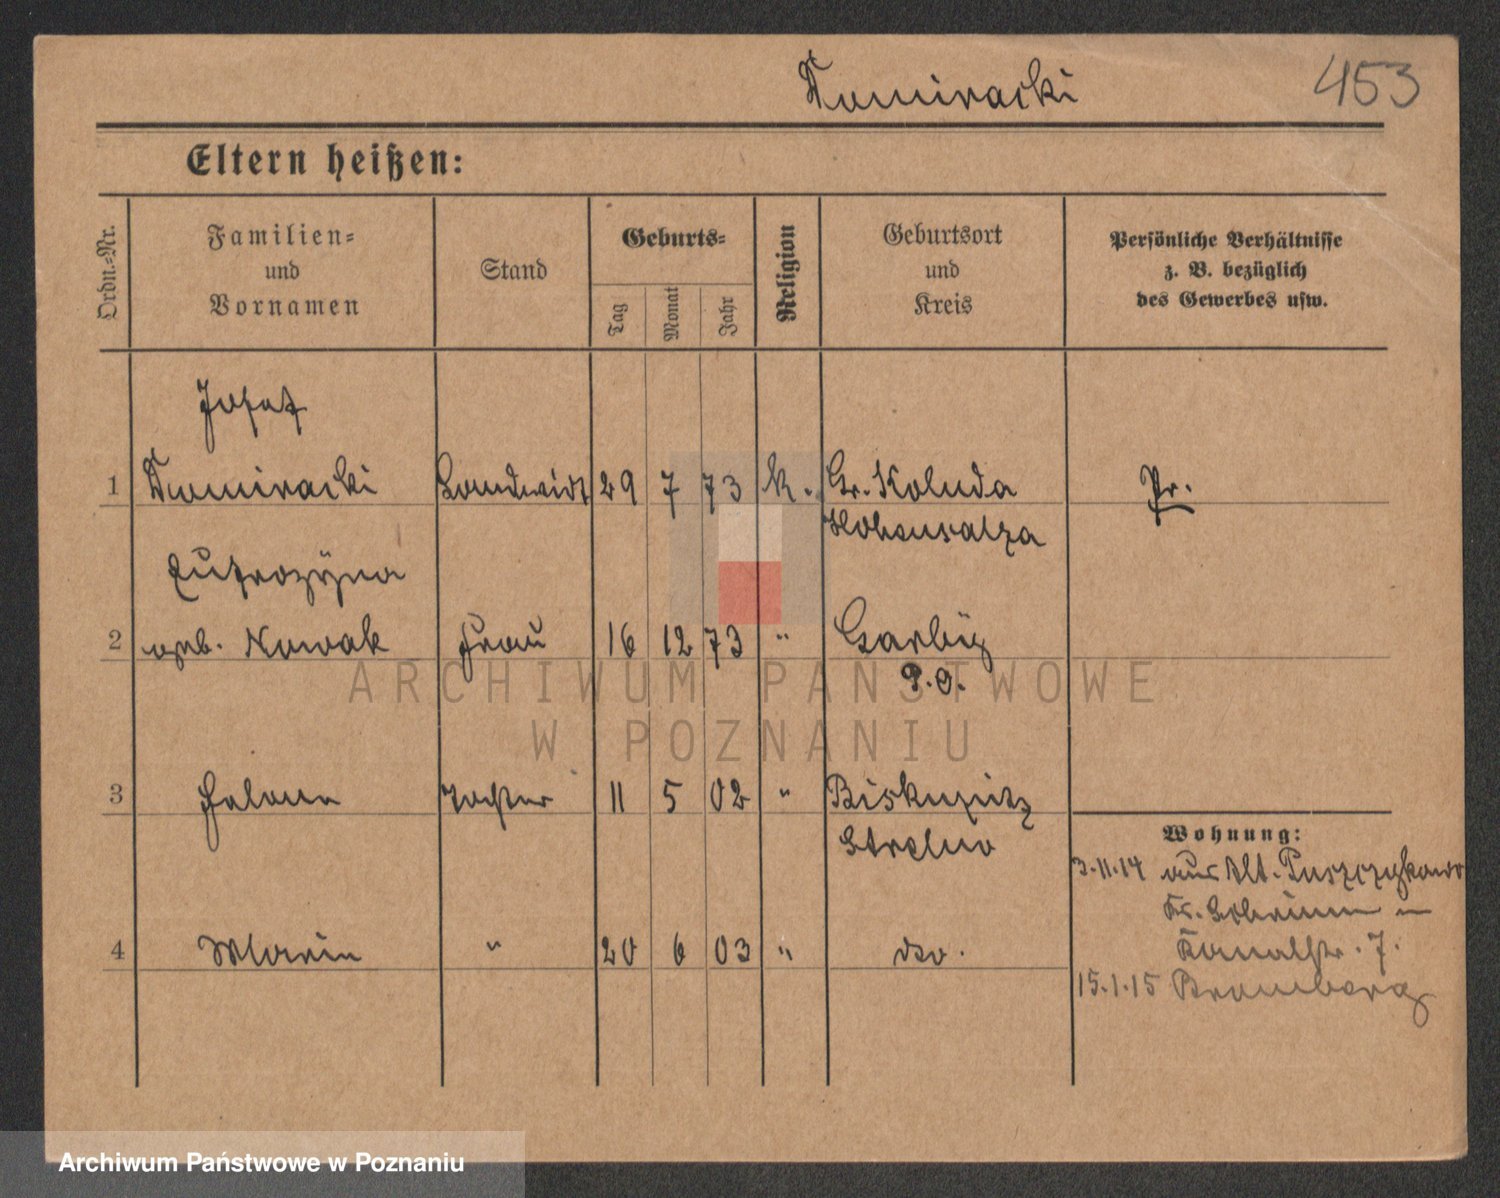 Tomiracki 453
Eltern heißen:
Ordn.-Nr.
Familien-
und
Vornamen
Stand
Geburts-
Tag
Monat
Jahr
Religion
Geburtsort
und
Kreis
Persönliche Verhältnisse
z. B. bezüglich
des Gewerbes usw.
Josef
1 Tomiracki Landwirt 29 7 73 k. Gr. Koluda Pr.
Hohensalza
Eufrozÿna
2 geb. Nowak Frau 16 12 73 " Garbÿ
P.O.
3 Helene Tochter 11 5 02 " Biskupitz
Strelno
4 Marie " 20 6 03 " dto.
Wohnung:
3.11.14 aus Alt. Puszczykowo
Kr. Schrimm –
Kanalstr. 7.
15.1.15 Bromberg
ARCHIWUM PAŃSTWOWE
W POZNANIU
Archiwum Państwowe w Poznaniu